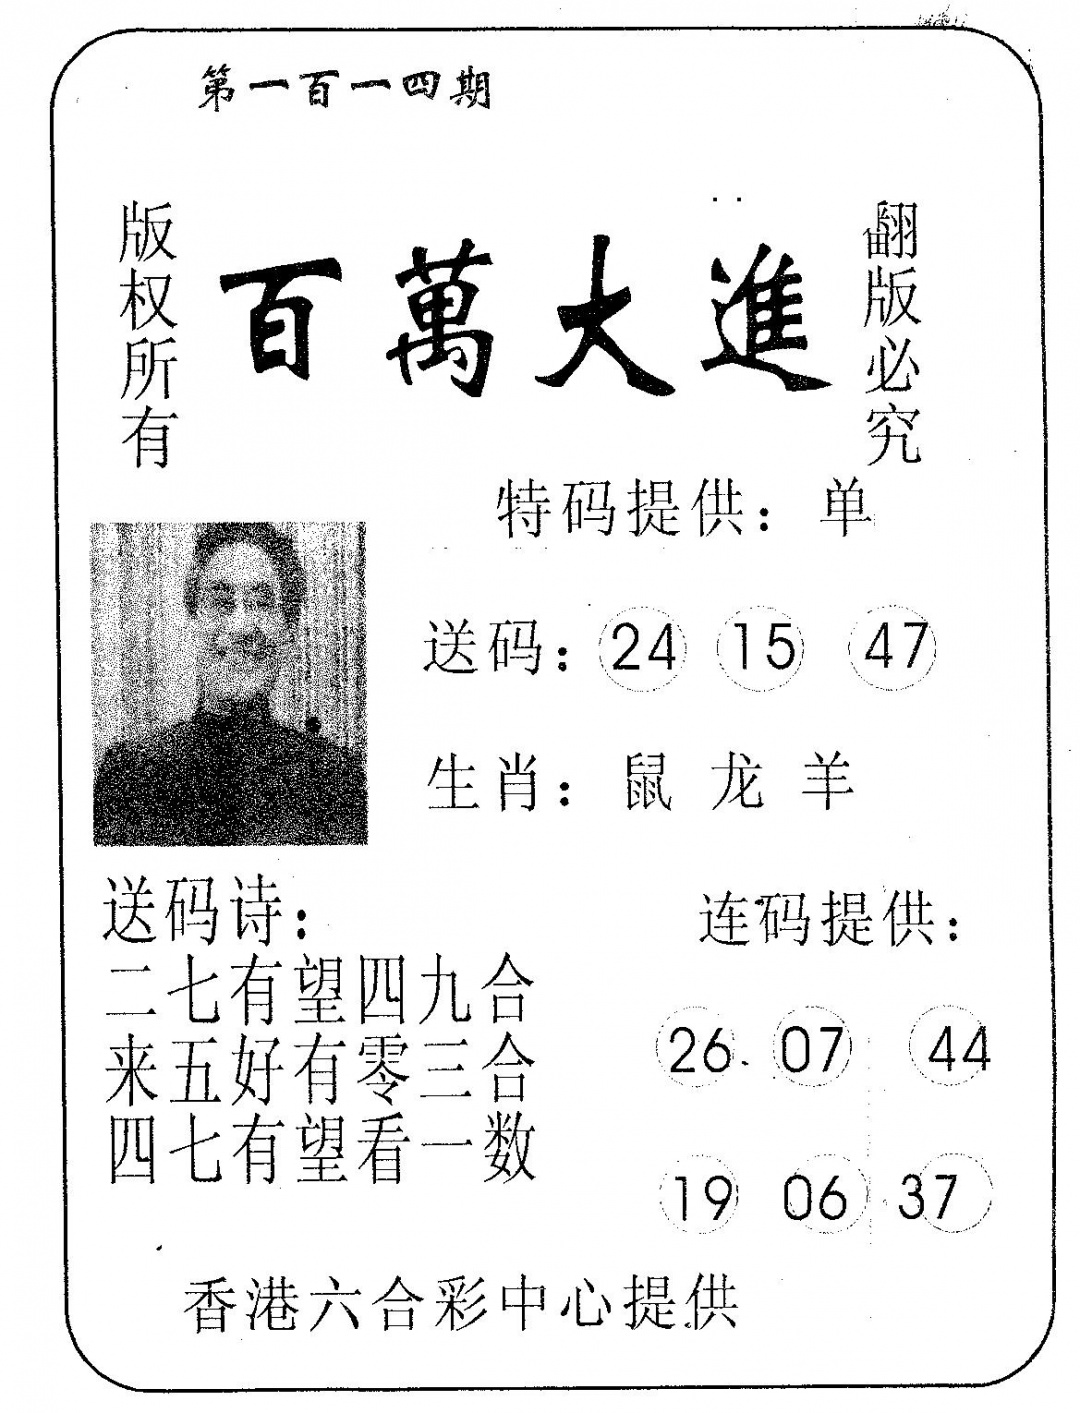 第一百一十四期
版权所有
百萬大進
翻版必究
特码提供：单
送码：24 15 47
生肖：鼠 龙 羊
送码诗：
二七有望四九合
来五好有零三合
四七有望看一数
连码提供：
26 07 44
19 06 37
香港六合彩中心提供